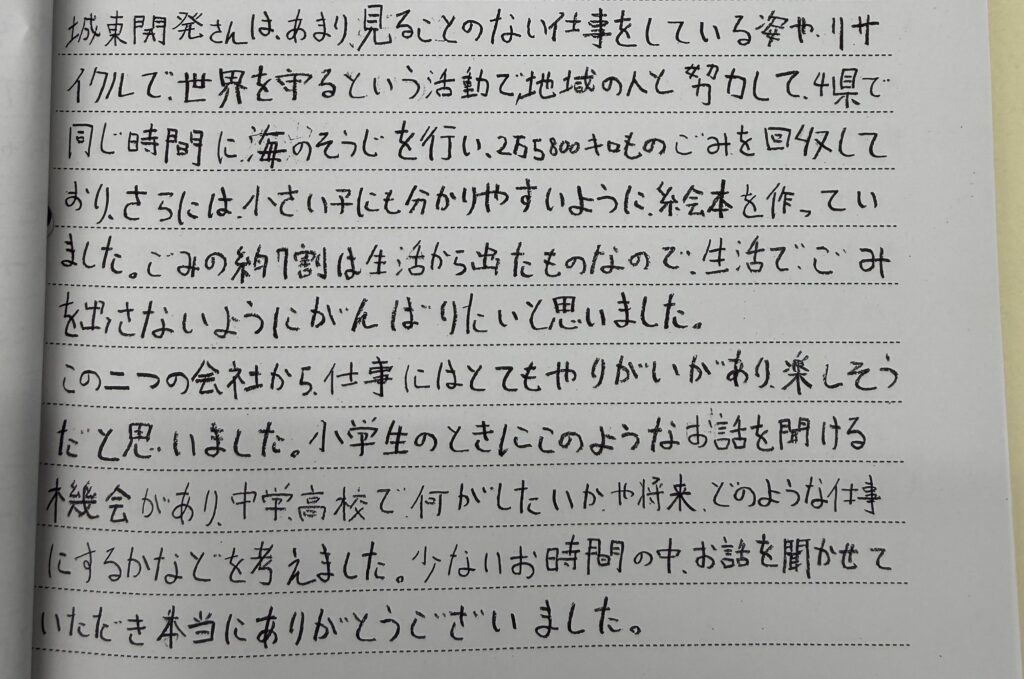 城東開発さんは、あまり、見ることのない仕事をしている姿や、リサ
イクルで、世界を守るという活動で、地域の人と努力して、4県で
同じ時間に、海のそうじを行い、2万5800キロものごみを回収して
おり、さらには、小さい子にも分かりやすいように、絵本を作ってい
ました。ごみの約7割は生活から出たものなので、生活で、ごみ
を出さないようにがんばりたいと思いました。
この二つの会社から、仕事にはとてもやりがいがあり、楽しそう
だと思いました。小学生のときにこのようなお話を聞ける
機会があり、中学、高校で何がしたいかや将来、どのような仕事
にするかなどを考えました。少ないお時間の中、お話を聞かせて
いただき本当にありがとうございました。